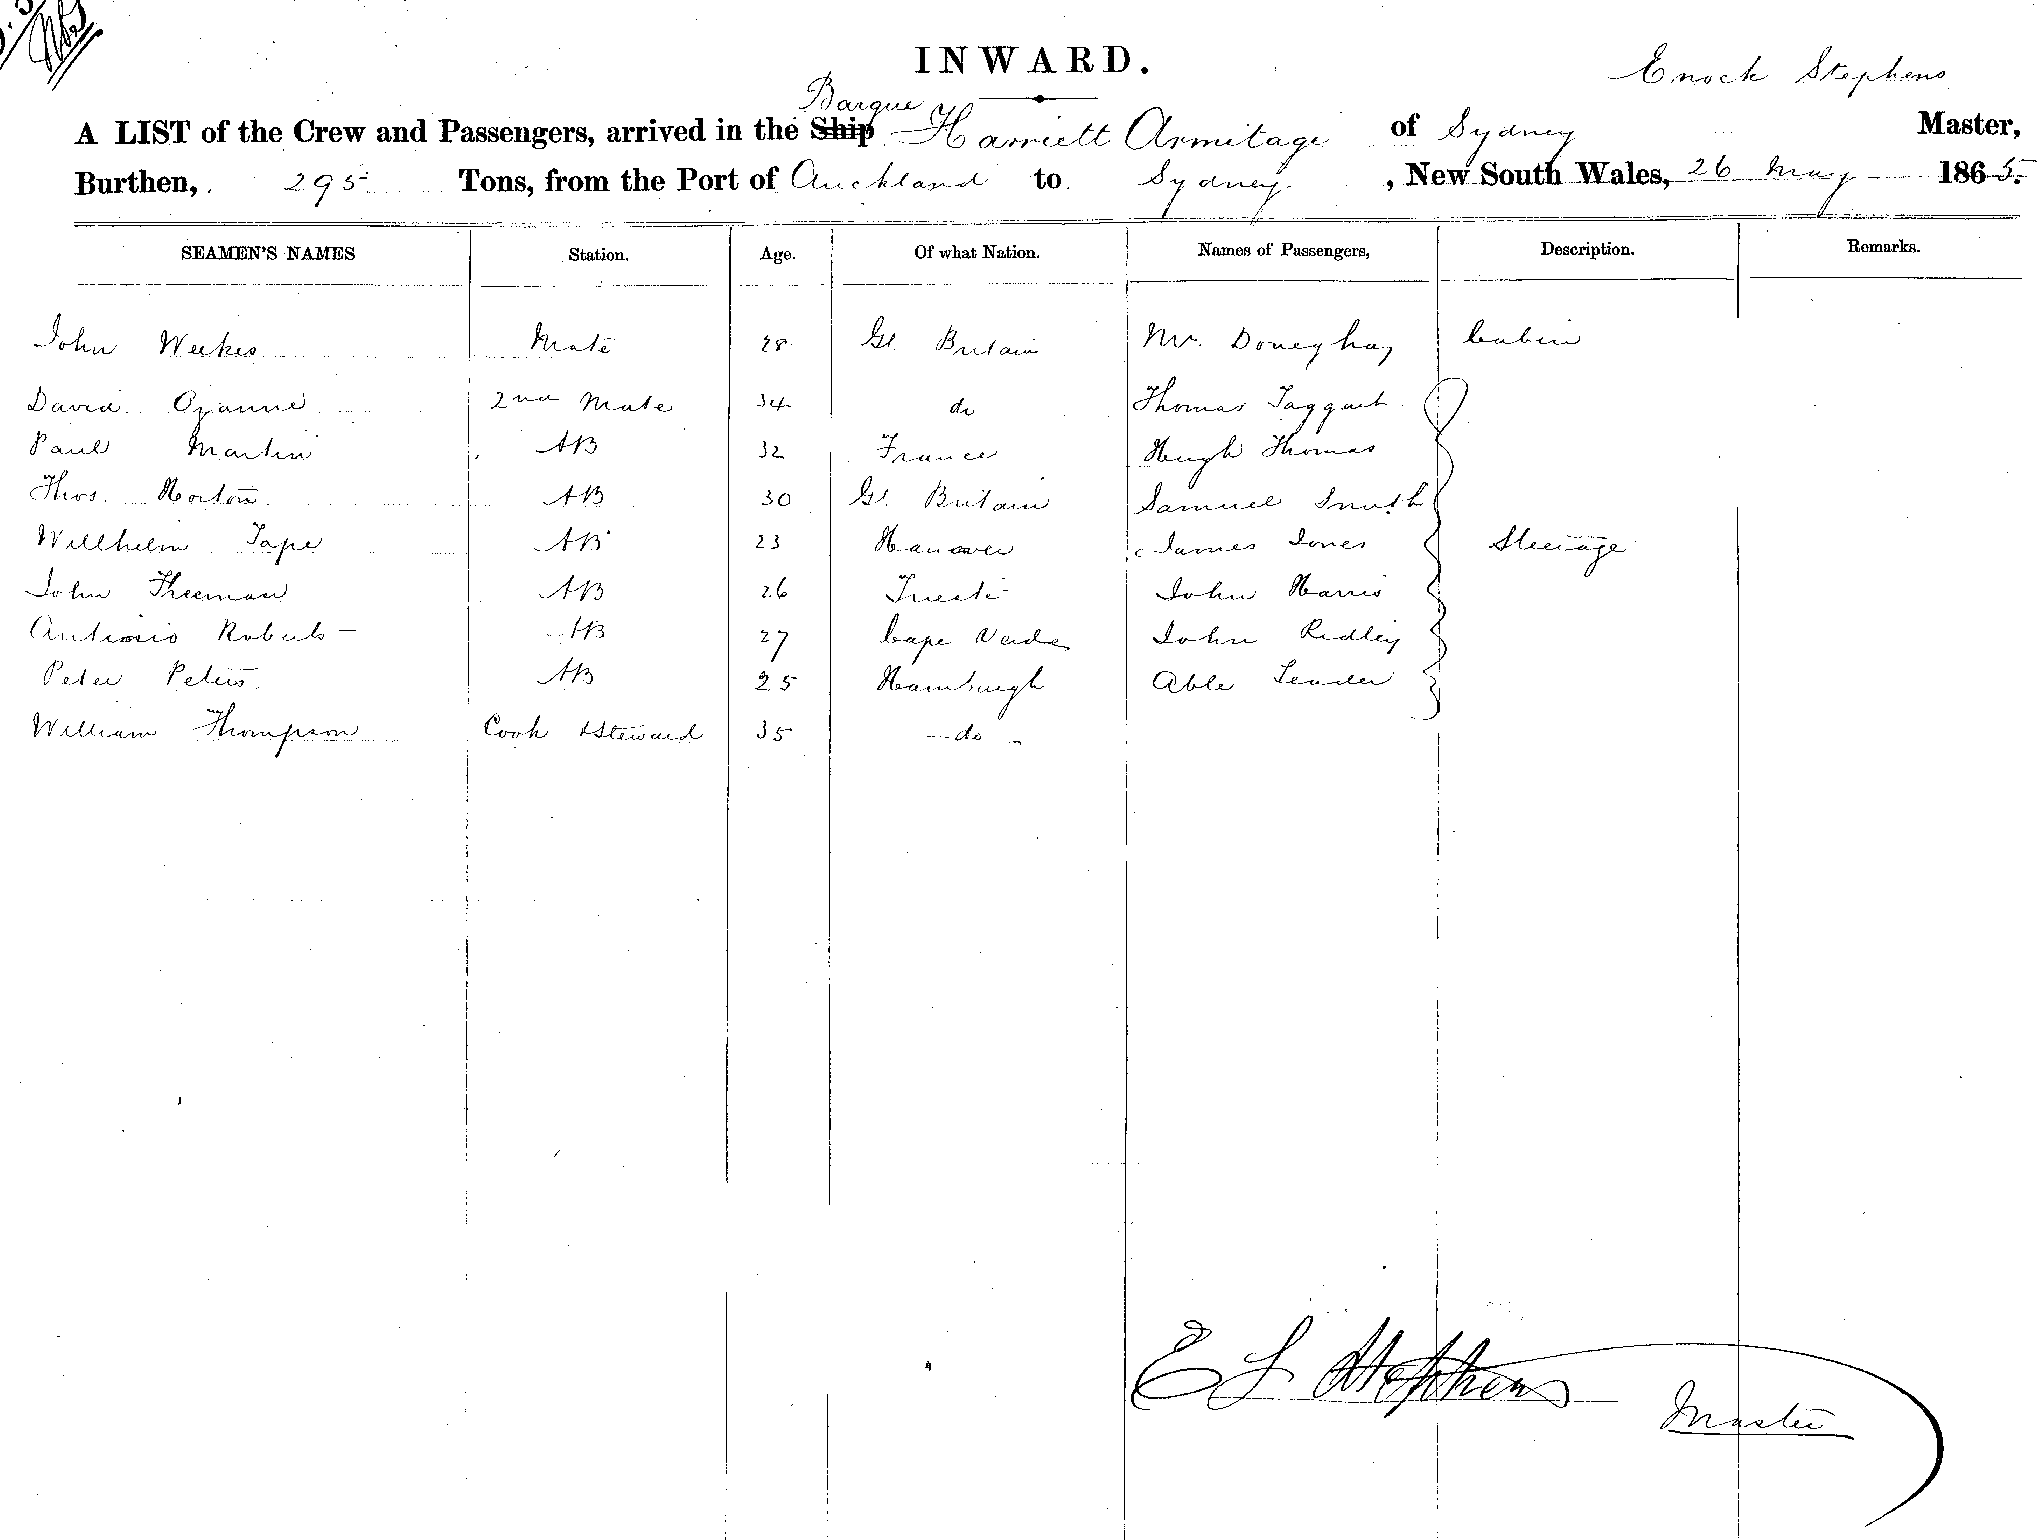 INWARD.
Enoch Stephens
Barque
A LIST of the Crew and Passengers, arrived in the Ship Harriett Armitage of Sydney Master,
Burthen, 295 Tons, from the Port of Auckland to Sydney, New South Wales, 26 May 1865.
SEAMEN'S NAMES Station. Age. Of what Nation. Names of Passengers, Description. Remarks.
John Weekes Mate 28 Gt. Britain Mr. Doneghay Cabin
David Ozanne 2nd Mate 34 do Thomas Taggart
Paul Martin AB 32 France Hugh Thomas
Thos. Horton AB 30 Gt. Britain Samuel Smith
Willhelm Tape AB 23 Hanover James Jones Steerage
John Freeman AB 26 Trieste John Harris
Antonio Roberts AB 27 Cape Verde John Ridley
Peter Peters AB 25 Hamburgh Able Leader
William Thompson Cook & Steward 35 do
E L Stephens
Master